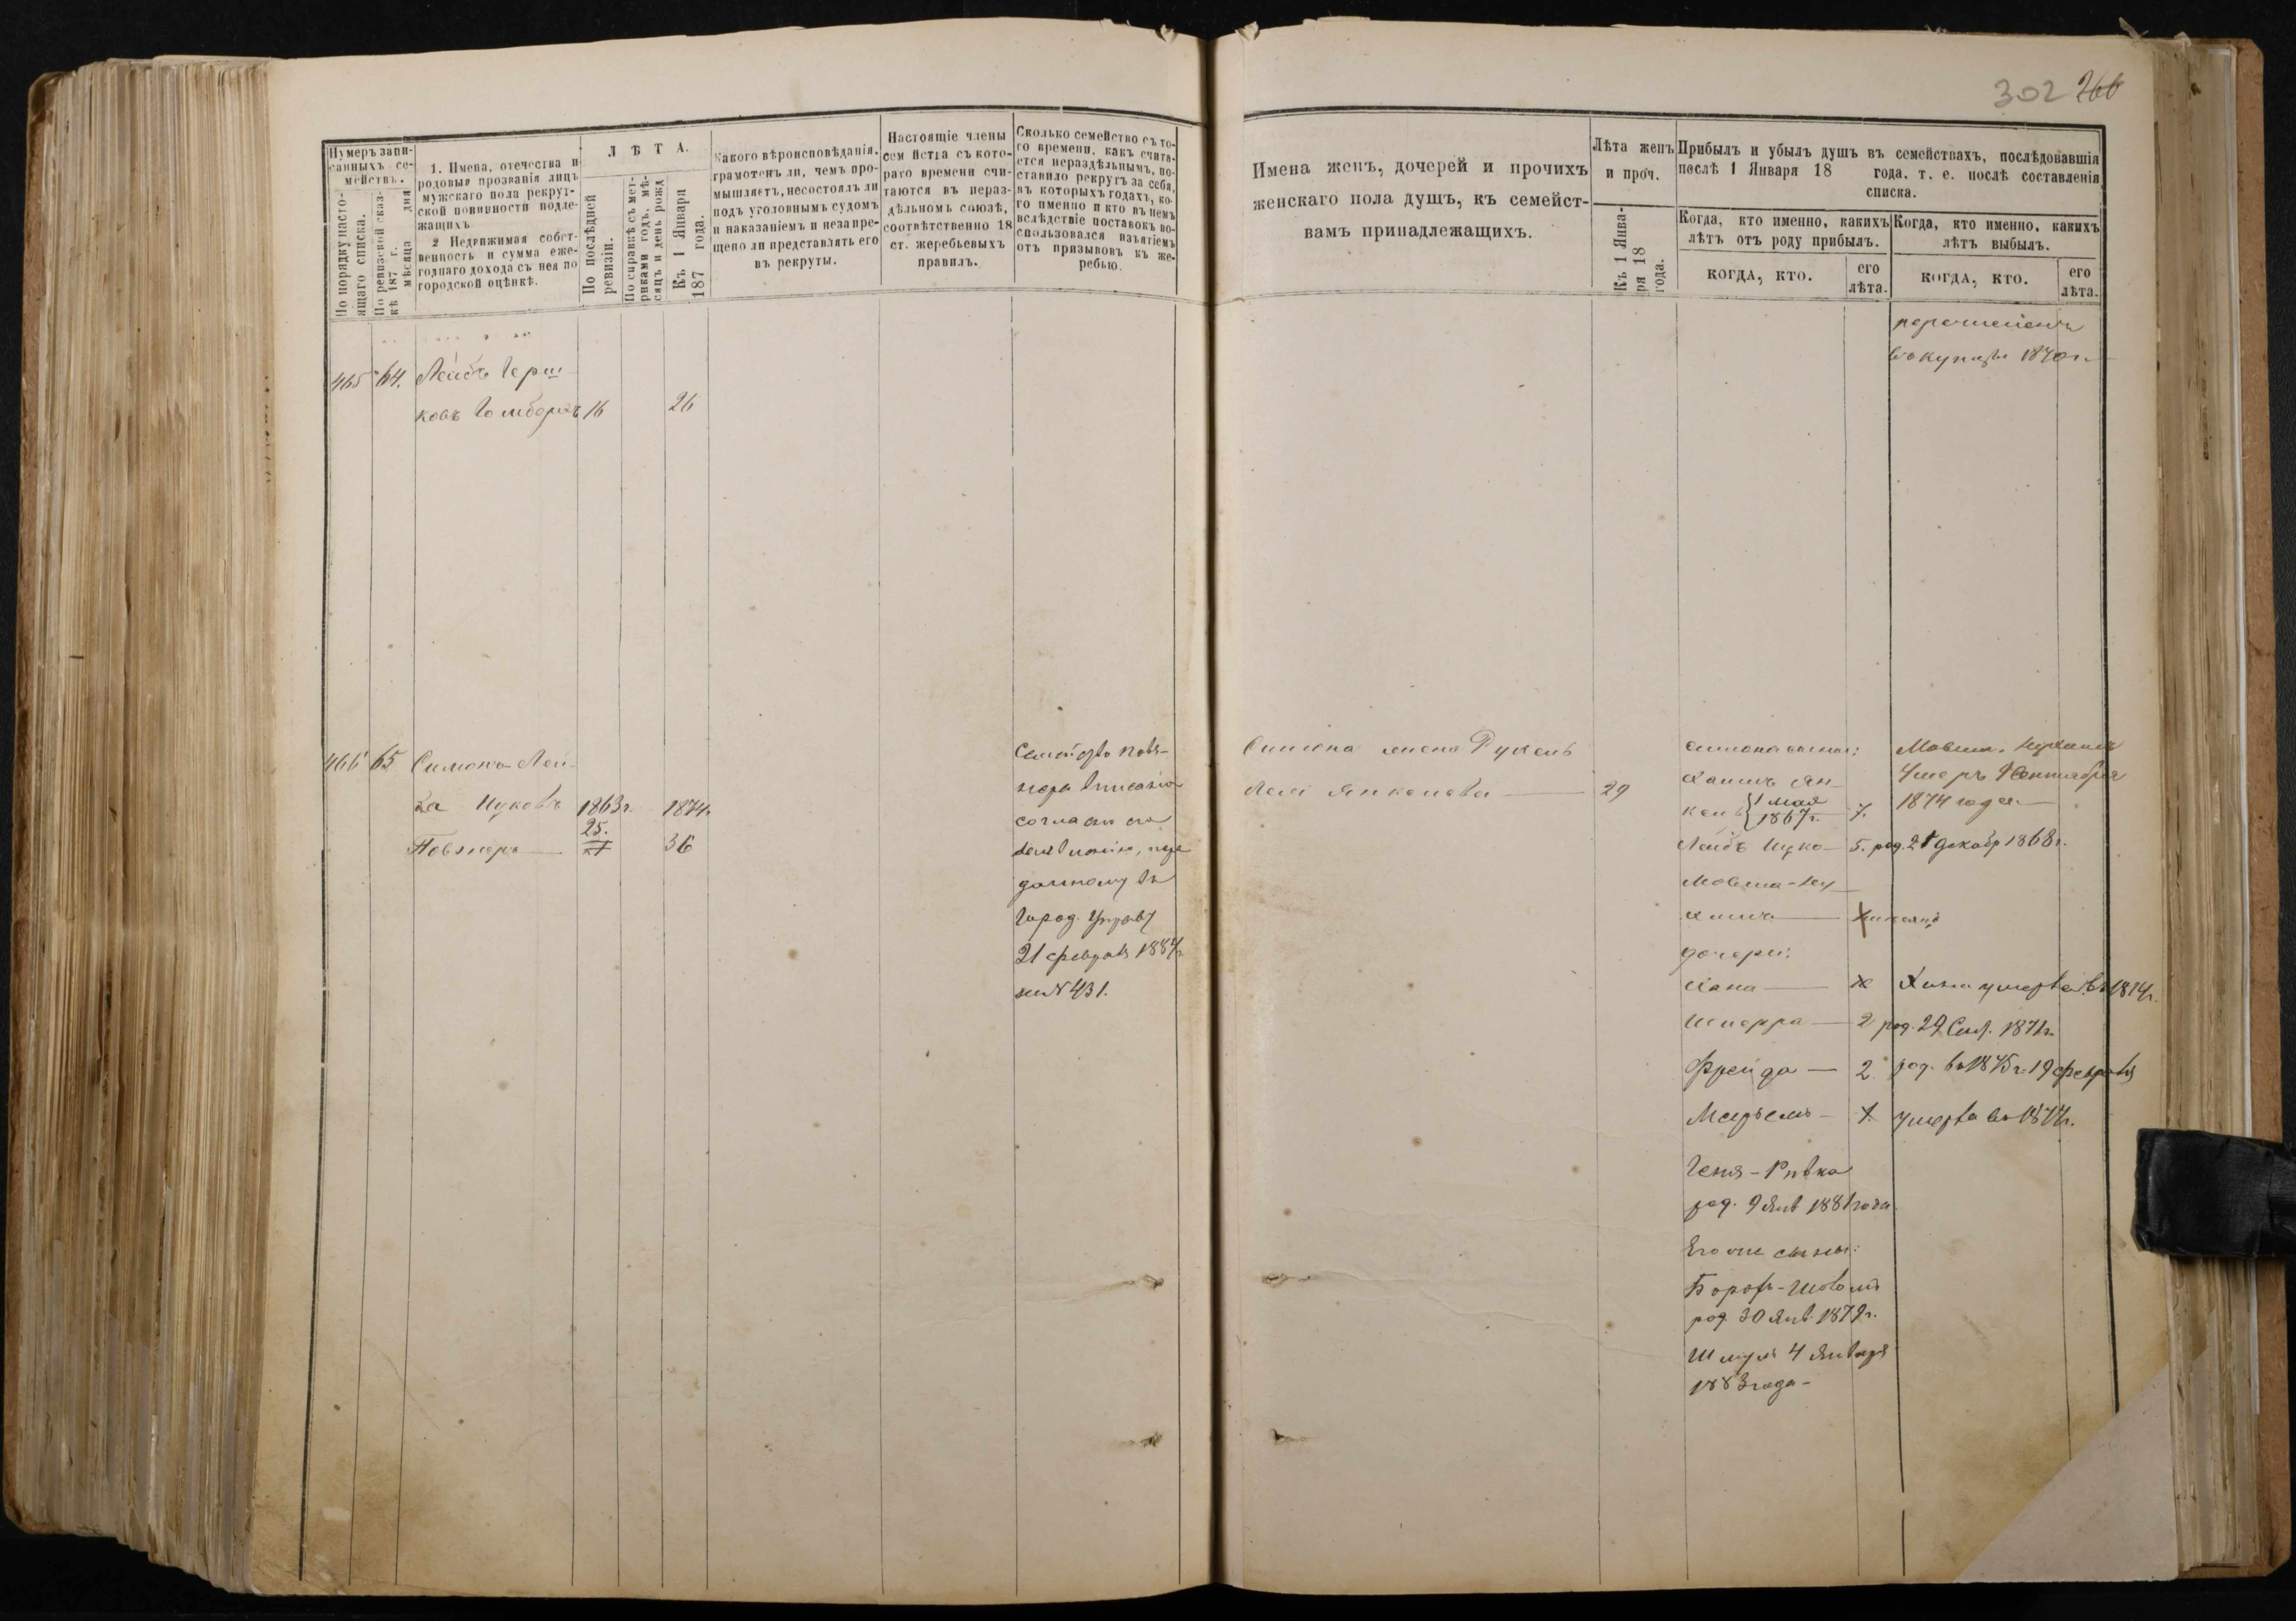 302 266
Нумеръ запи-
санныхъ се-
мействъ.
По порядку насто-
ящаго списка.
По ревизской сказ-
кѣ 187 г. мѣсяца дня
1. Имена, отечества и
родовыя прозванія лицъ
мужскаго пола рекрут-
ской повинности подле-
жащихъ
2 Недвижимая собст-
венность и сумма еже-
годнаго дохода съ нея по
городской оцѣнкѣ.
ЛѢТА.
По послѣдней
ревизіи.
По справкѣ съ мет-
риками годъ, мѣ-
сяцъ и день рожд
Къ 1 Января
187 года.
Какого вѣроисповѣданія,
грамотенъ ли, чемъ про-
мышляетъ, несостоялъ ли
подъ уголовнымъ судомъ
и наказаніемъ и незапре-
щено ли представлять его
въ рекруты.
Настоящіе члены
сем йства съ кото-
раго времени счи-
таются въ нераз-
дѣльномъ союзѣ,
соотвѣтственно 18
ст. жеребьевыхъ
правилъ.
Сколько семейство съ то-
го времени, какъ счита-
ется нераздѣльнымъ, по-
ставило рекрутъ за себя,
въ которыхъ годахъ, ко-
го именно и кто въ немъ
вслѣдствіе поставокъ во-
спользовался изъятіемъ
отъ призывовъ къ же-
ребью.
Имена женъ, дочерей и прочихъ
женскаго пола душъ, къ семейст-
вамъ принадлежащихъ.
Лѣта женъ
и проч.
Къ 1 Янва-
ря 18
года.
Прибылъ и убылъ душъ въ семействахъ, послѣдовавшія
послѣ 1 Января 18 года. т. е. послѣ составленія
списка.
Когда, кто именно, какихъ
лѣтъ отъ роду прибылъ.
КОГДА, КТО.
его
лѣта.
Когда, кто именно, какихъ
лѣтъ выбылъ.
КОГДА, КТО.
его
лѣта.
465 64. Лейбъ Герш-
ковъ 16 26
1870 г.
466 65 Симонъ Лей-
ба Ицковъ 1863г. 1874г.
Повзнеръ 25. 36
Семейство Повз-
нера
согласно
Город. Управу
21 февраля 1884г.
за № 431.
Симона жена Рухель
Лея Янкелева 29
Симона сыновья:
Хаимъ Ян-
кель 1 мая 1867г. 7.
Лейбъ Ицко 5. род. 21 декабр 1868г.
Мовша-Ну
химъ
дочери:
Хана Хана умерла въ 1874г.
Шперра 2 род. 29 Сент. 1871г.
Фрейда 2. род. въ 1875г. 19 февраля
Меръемъ 1. умерла въ 1877г.
Геня-Ривка
род. 9 Янв 1881 года
Его же сыны:
Борохъ-Шоломъ
род. 30 Янв. 1879г.
Шмуль 4 Января
1883 года-
перечисленъ
въ купцы
Мовша-Нухимъ
умеръ 9 Сентября
1874 года